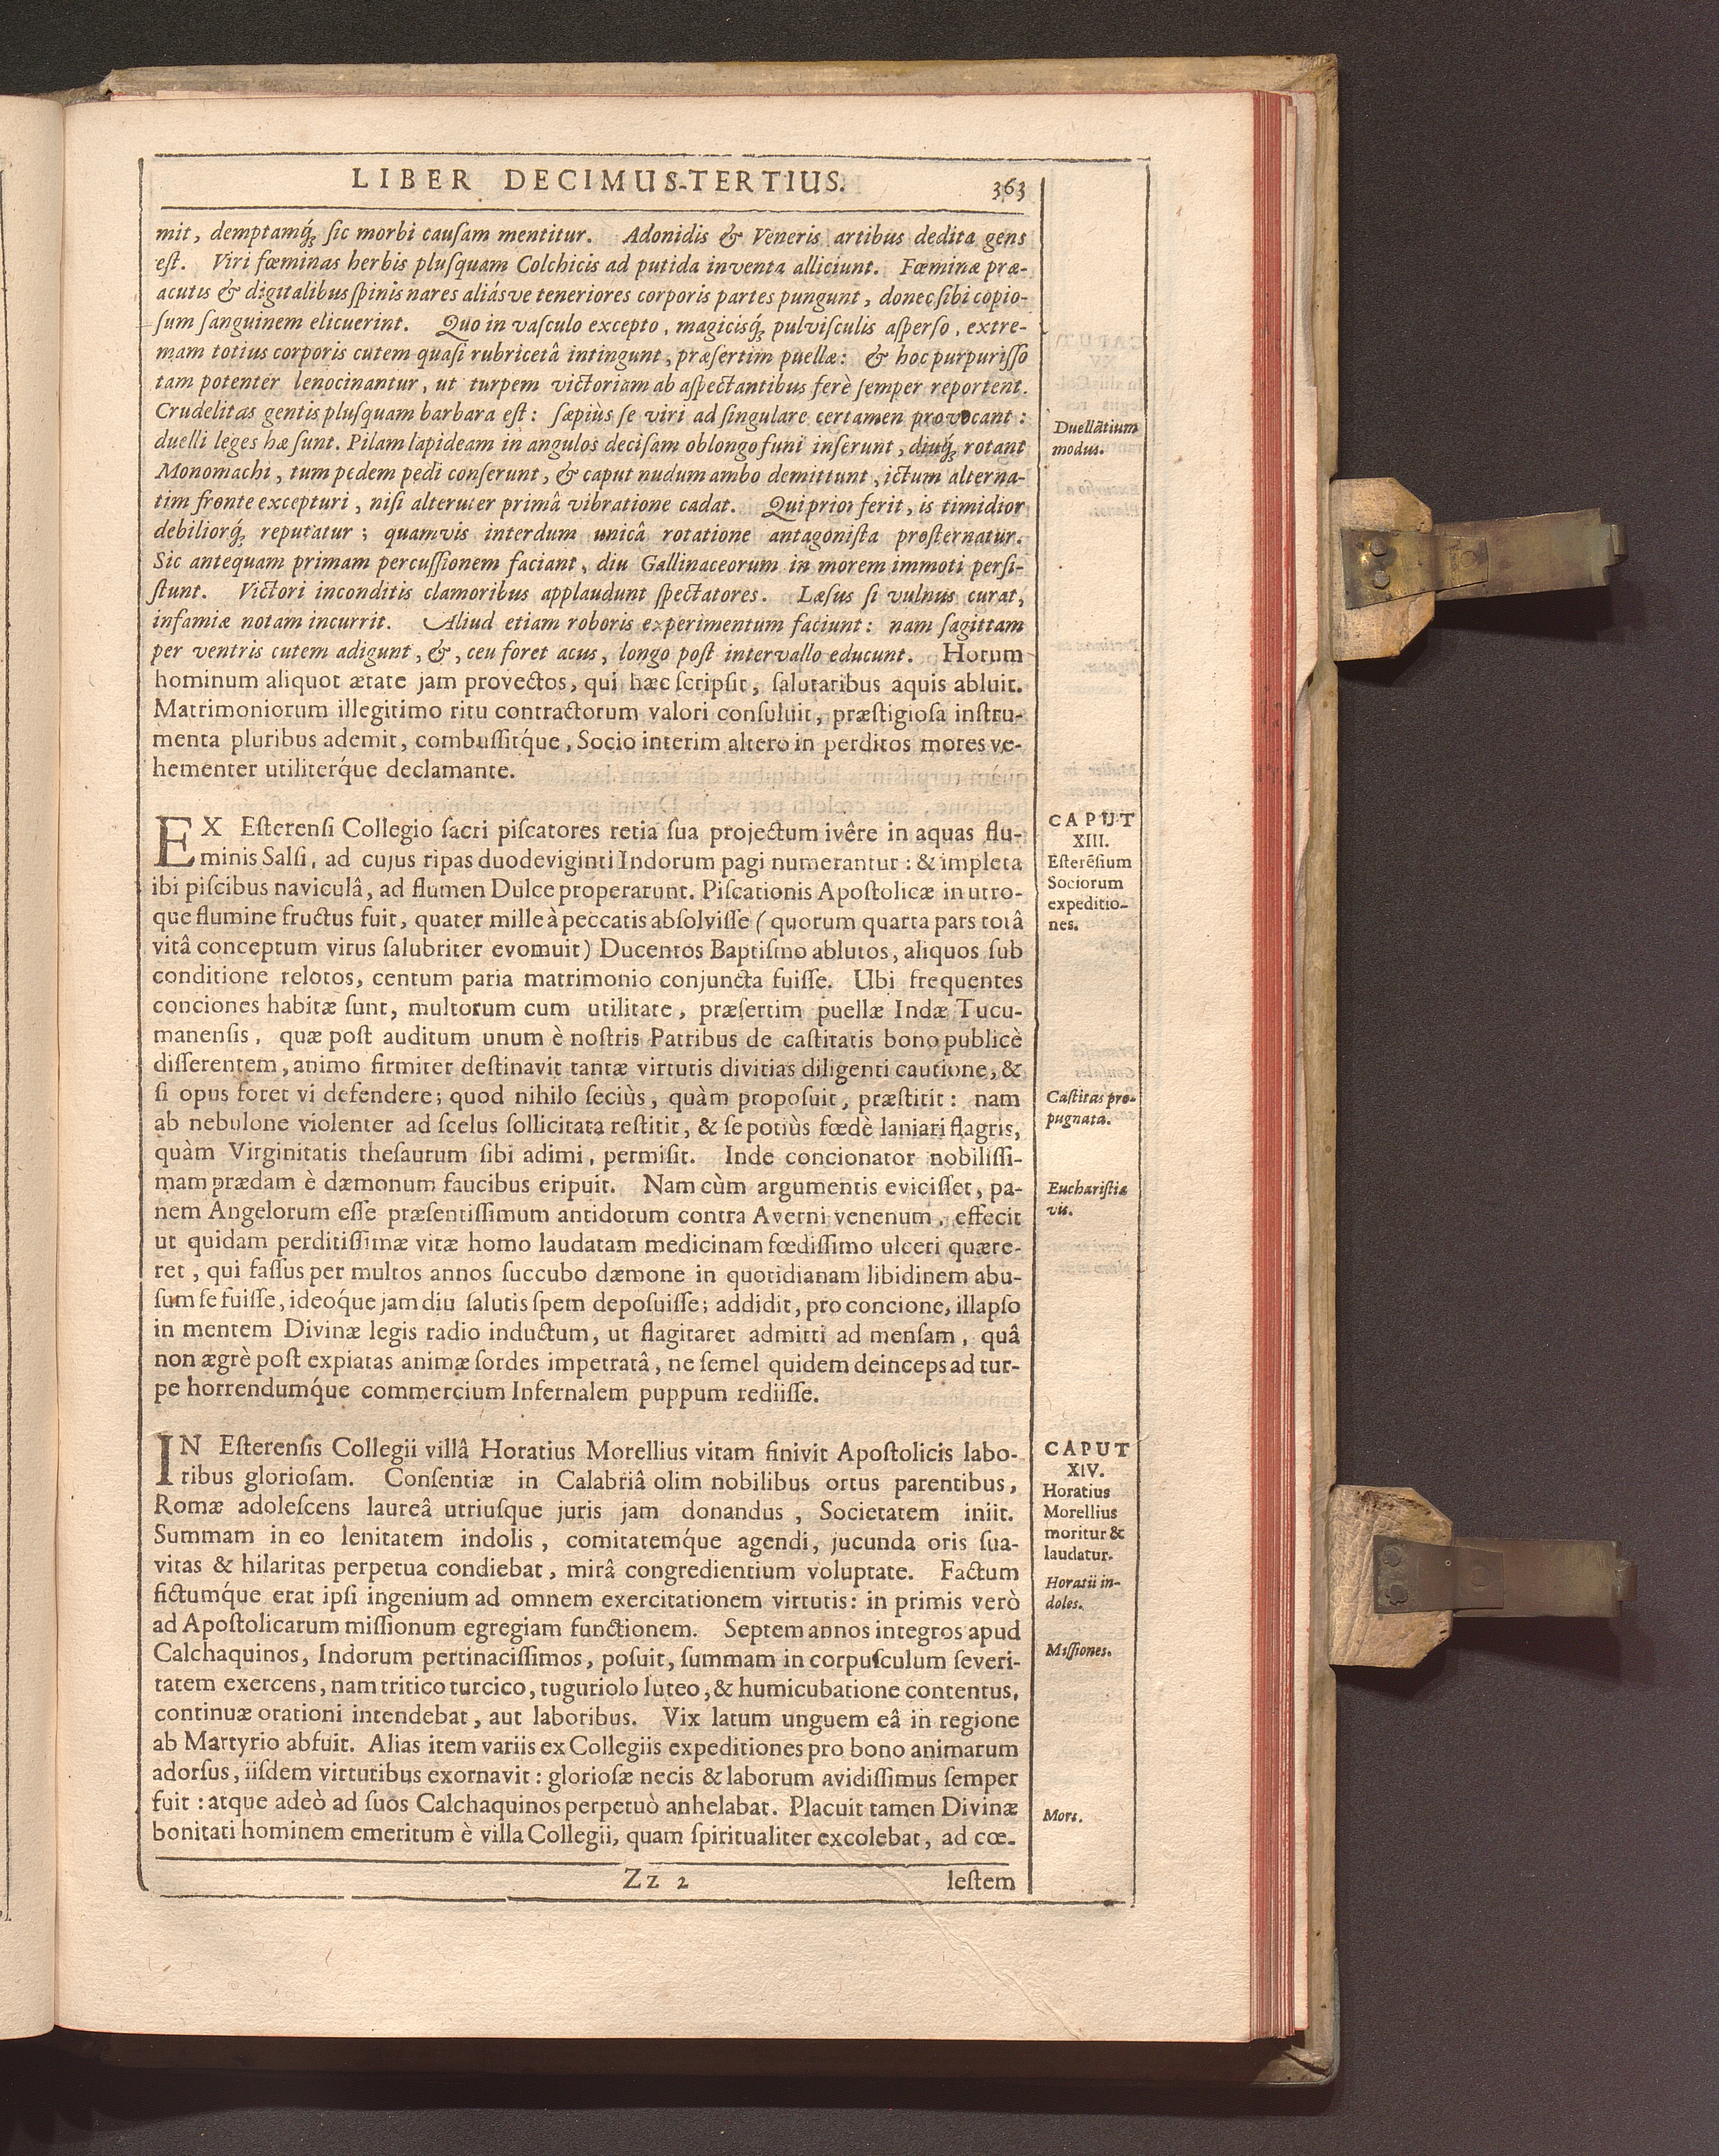 LIBER DECIMUS-TERTIUS. 363
mit, demptamq́ꝫ sic morbi causam mentitur. Adonidis & Veneris artibus dedita gens
est. Viri fœminas herbis plusquam Colchicis ad putida inventa alliciunt. Fœminæ præ-
acutis & digitalibus spinis nares aliásve teneriores corporis partes pungunt, donec sibi copio-
sum sanguinem elicuerint. Quo in vasculo excepto, magicisq́ꝫ pulvisculis asperso, extre-
mam totius corporis cutem quasi rubricetâ intingunt, præsertim puellæ: & hoc purpurisso
tam potenter lenocinantur, ut turpem victoriam ab aspectantibus ferè semper reportent.
Crudelitas gentis plusquam barbara est: sæpiùs se viri ad singulare certamen provocant:
duelli leges hæ sunt. Pilam lapideam in angulos decisam oblongo funi inserunt, diuq́ꝫ rotant
Monomachi, tum pedem pedi conserunt, & caput nudum ambo demittunt, ictum alterna-
tim fronte excepturi, nisi alteruter primâ vibratione cadat. Qui prior ferit, is timidior
debiliorq́ꝫ reputatur; quamvis interdum unicâ rotatione antagonista prosternatur.
Sic antequam primam percussionem faciant, diu Gallinaceorum in morem immoti persi-
stunt. Victori inconditis clamoribus applaudunt spectatores. Læsus si vulnus curat,
infamiæ notam incurrit. Aliud etiam roboris experimentum faciunt: nam sagittam
per ventris cutem adigunt, &, ceu foret acus, longo post intervallo educunt. Horum
hominum aliquot ætate jam provectos, qui hæc scripsit, salutaribus aquis abluit.
Matrimoniorum illegitimo ritu contractorum valori consuluit, præstigiosa instru-
menta pluribus ademit, combussitq́ue, Socio interim altero in perditos mores ve-
hementer utiliterq́ue declamante.
Duellātium
modus.
EX Esterensi Collegio sacri piscatores retia sua projectum ivêre in aquas flu-
minis Salsi, ad cujus ripas duodeviginti Indorum pagi numerantur: & impleta
ibi piscibus naviculâ, ad flumen Dulce properarunt. Piscationis Apostolicæ in utro-
que flumine fructus fuit, quater mille à peccatis absolvisse (quorum quarta pars totâ
vitâ conceptum virus salubriter evomuit) Ducentos Baptismo ablutos, aliquos sub
conditione relotos, centum paria matrimonio conjuncta fuisse. Ubi frequentes
conciones habitæ sunt, multorum cum utilitate, præsertim puellæ Indæ Tucu-
manensis, quæ post auditum unum è nostris Patribus de castitatis bono publicè
disserentem, animo firmiter destinavit tantæ virtutis divitias diligenti cautione, &
si opus foret vi defendere; quod nihilo seciùs, quàm proposuit, præstitit: nam
ab nebulone violenter ad scelus sollicitata restitit, & se potiùs fœdè laniari flagris,
quàm Virginitatis thesaurum sibi adimi, permisit. Inde concionator nobilissi-
mam prædam è dæmonum faucibus eripuit. Nam cùm argumentis evicisset, pa-
nem Angelorum esse præsentissimum antidotum contra Averni venenum, effecit
ut quidam perditissimæ vitæ homo laudatam medicinam fœdissimo ulceri quære-
ret, qui fassus per multos annos succubo dæmone in quotidianam libidinem abu-
sum se fuisse, ideoq́ue jam diu salutis spem deposuisse; addidit, pro concione, illapso
in mentem Divinæ legis radio inductum, ut flagitaret admitti ad mensam, quâ
non ægrè post expiatas animæ sordes impetratâ, ne semel quidem deinceps ad tur-
pe horrendumq́ue commercium Infernalem puppum rediisse.
CAPUT
XIII.
Esterēsium
Sociorum
expeditio-
nes.
Castitas pro-
pugnata.
Eucharistiæ
vis.
IN Esterensis Collegii villâ Horatius Morellius vitam finivit Apostolicis labo-
ribus gloriosam. Consentiæ in Calabriâ olim nobilibus ortus parentibus,
Romæ adolescens laureâ utriusque juris jam donandus, Societatem iniit.
Summam in eo lenitatem indolis, comitatemq́ue agendi, jucunda oris sua-
vitas & hilaritas perpetua condiebat, mirâ congredientium voluptate. Factum
fictumq́ue erat ipsi ingenium ad omnem exercitationem virtutis: in primis verò
ad Apostolicarum missionum egregiam functionem. Septem annos integros apud
Calchaquinos, Indorum pertinacissimos, posuit, summam in corpusculum severi-
tatem exercens, nam tritico turcico, tuguriolo luteo, & humicubatione contentus,
continuæ orationi intendebat, aut laboribus. Vix latum unguem eâ in regione
ab Martyrio abfuit. Alias item variis ex Collegiis expeditiones pro bono animarum
adorsus, iisdem virtutibus exornavit: gloriosæ necis & laborum avidissimus semper
fuit: atque adeò ad suos Calchaquinos perpetuò anhelabat. Placuit tamen Divinæ
bonitati hominem emeritum è villa Collegii, quam spiritualiter excolebat, ad cœ-
CAPUT
XIV.
Horatius
Morellius
moritur &
laudatur.
Horatii in-
doles.
Missiones.
Mors.
Zz 2 lestem